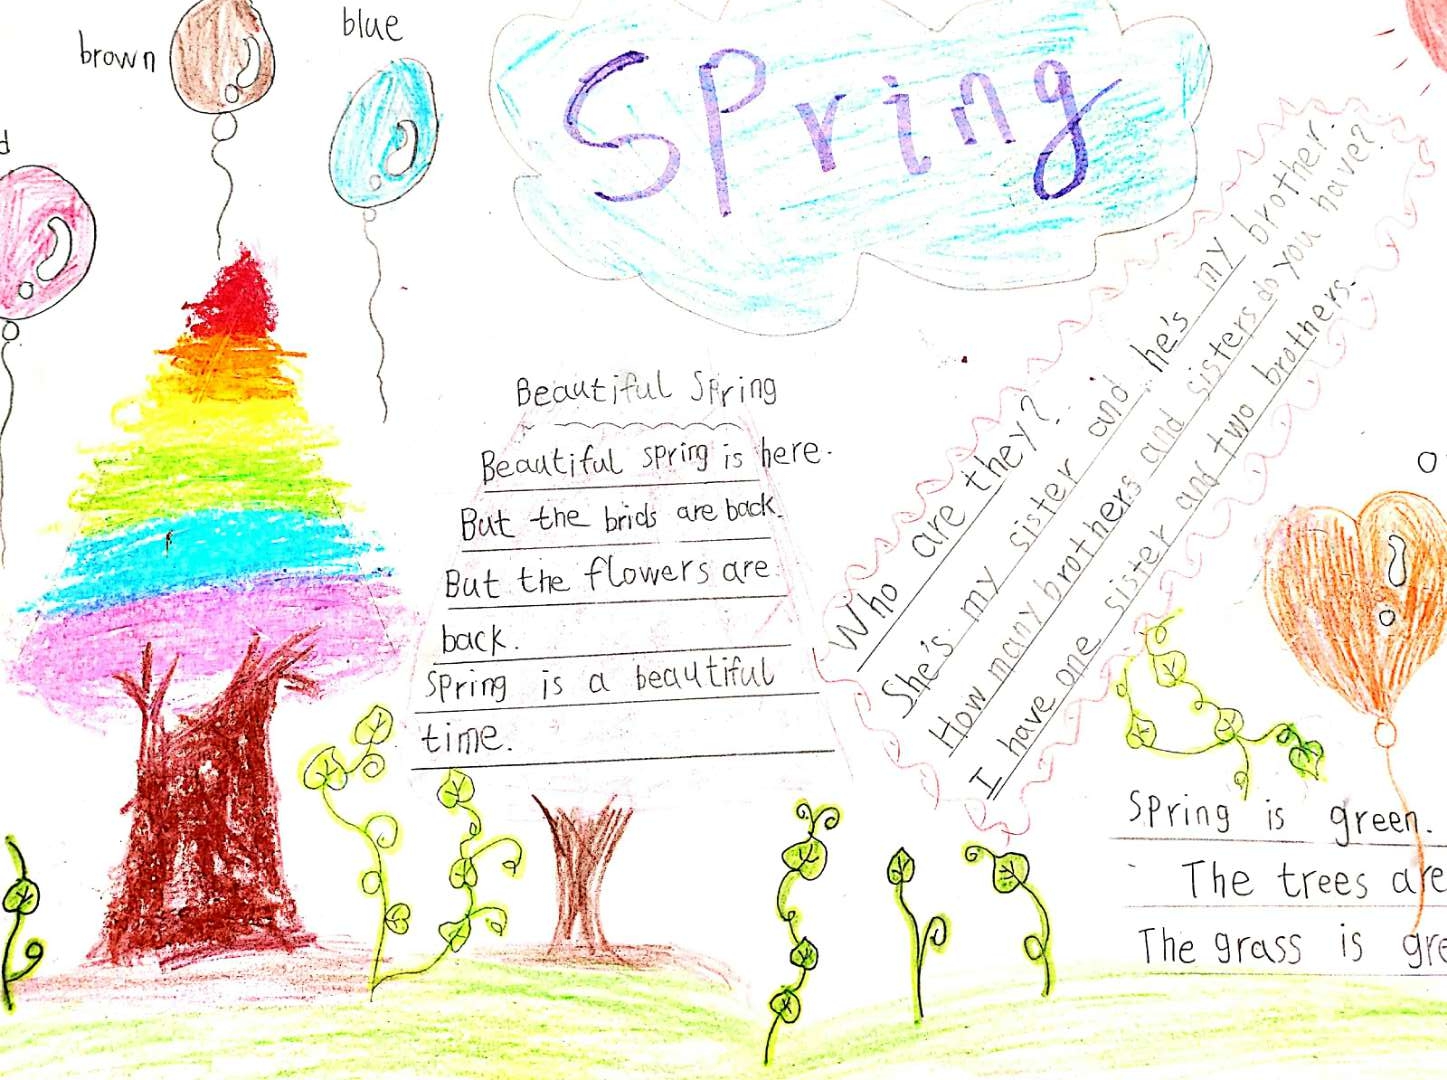 brown
blue
Spring
Beautiful Spring
Beautiful spring is here.
But the brids are back.
But the flowers are
back.
Spring is a beautiful
time.
Who are they?
She's my sister and he's my brother.
How many brothers and sisters do you have?
I have one sister and two brothers.
Spring is green.
The trees are
The grass is gre